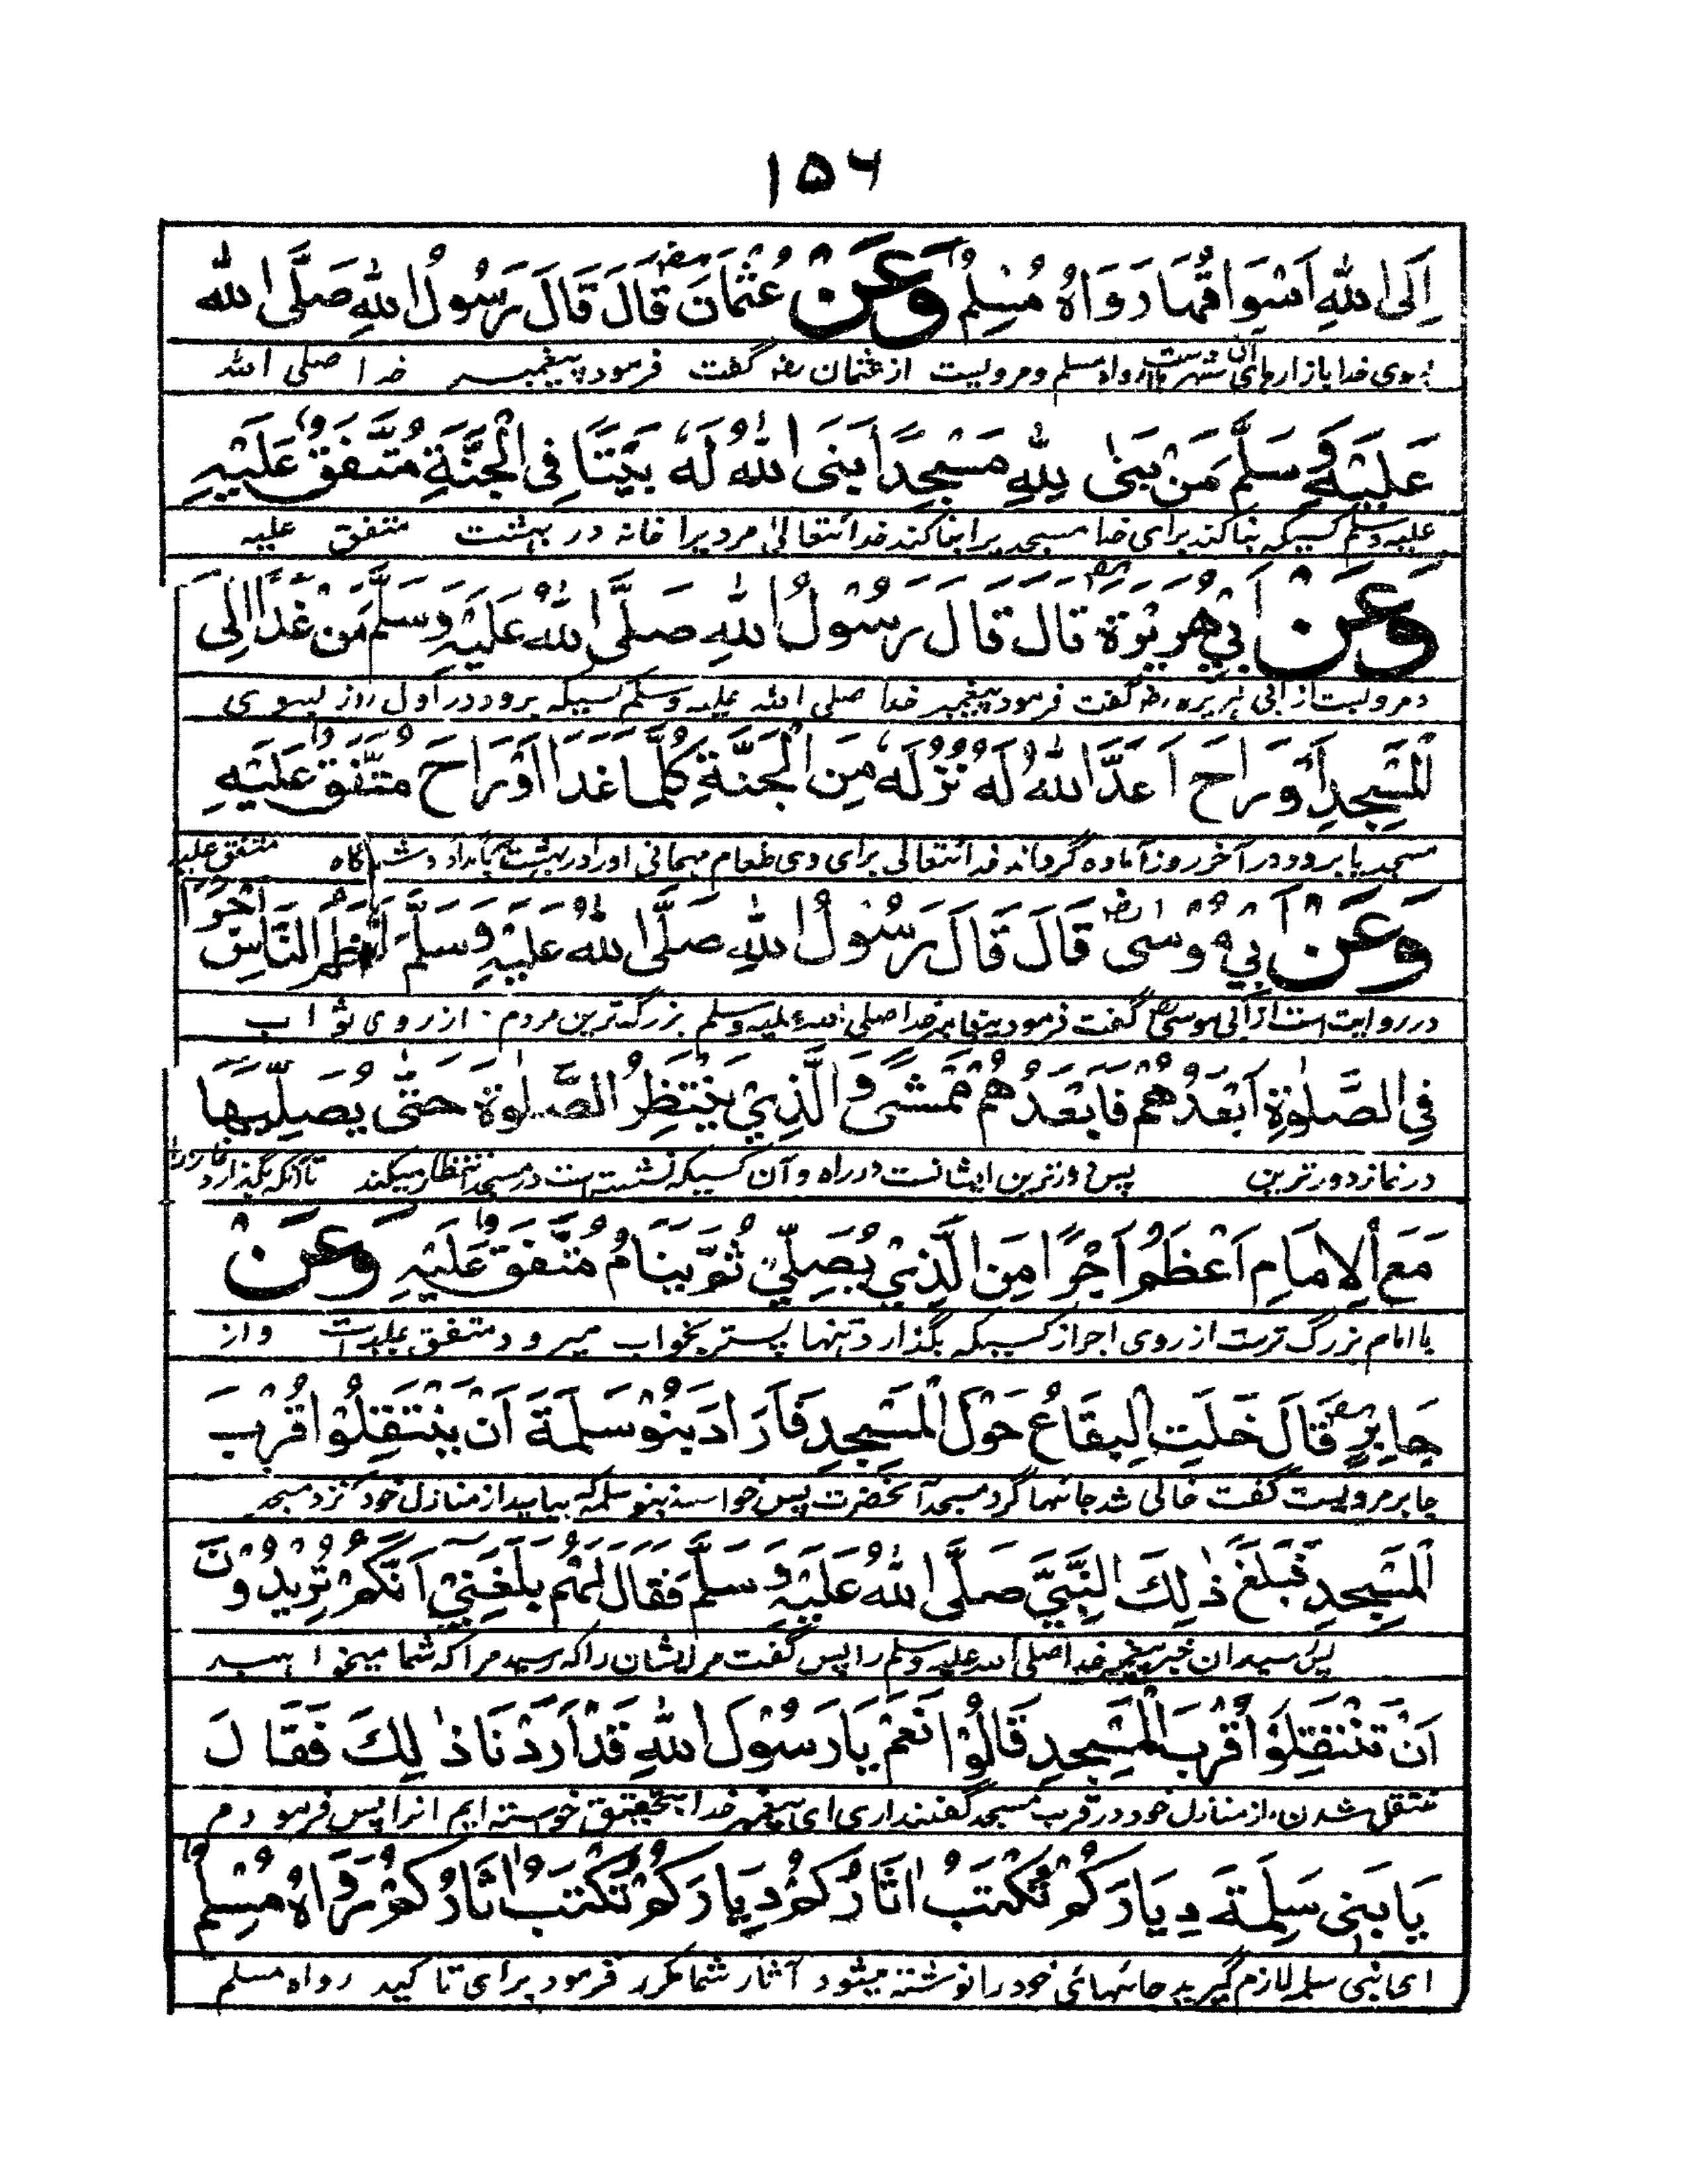 ١٥٦
اِلَى اللهِ اَسْوَاقُهَا رَوَاهُ مُسْلِمٌ وَعَنْ عُثْمَانَ رض قَالَ قَالَ رَسُوْلُ اللهِ صَلَّى اللهُ
بسوی خدا بازارهای آن شهرست رواه مسلم ومرویست از عثمان رض گفت فرمود پیغمبر خدا صلی الله
عَلَيْهِ وَسَلَّمَ مَنْ بَنٰى لِلّٰهِ مَسْجِدًا بَنَى اللهُ لَهٗ بَيْتًا فِى الْجَنَّةِ مُتَّفَقٌ عَلَيْهِ
علیه وسلم کسیکه بنا کند برای خدا مسجدیرا بنا کند خدایتعالیٰ مردیرا خانه در بهشت متفق علیه
وَعَنْ اَبِيْ هُرَيْرَةَ رض قَالَ قَالَ رَسُوْلُ اللهِ صَلَّى اللهُ عَلَيْهِ وَسَلَّمَ مَنْ غَدَا اِلَى
ومرویست از ابی هریره رض گفت فرمود پیغمبر خدا صلی الله علیه وسلم کسیکه برود در اول روز بسوی
الْمَسْجِدِ اَوْ رَاحَ اَعَدَّ اللهُ لَهٗ نُزُلَهٗ مِنَ الْجَنَّةِ كُلَّمَا غَدَا اَوْ رَاحَ مُتَّفَقٌ عَلَيْهِ
مسجد یا برود در آخر روز آماده گرداند خدایتعالی برای وی طعام مهمانی اورا در بهشت بامداد وشبانگاه متفق علیه
وَعَنْ اَبِيْ مُوْسٰى رض قَالَ قَالَ رَسُوْلُ اللهِ صَلَّى اللهُ عَلَيْهِ وَسَلَّمَ اَعْظَمُ النَّاسِ اَجْرًا
در روایت است از ابی موسی رض گفت فرمود پیغامبر خدا صلی الله علیه وسلم بزرگترین مردم از روی ثواب
فِي الصَّلٰوةِ اَبْعَدُهُمْ فَاَبْعَدُهُمْ مَمْشًى وَالَّذِيْ يَنْتَظِرُ الصَّلٰوةَ حَتّٰى يُصَلِّيَهَا
در نماز دورترین پس دورترین ایشانست در راه وآن کسیکه نشسته است در مسجد انتظار میکند تا آنکه بگذارد نماز را
مَعَ الْاِمَامِ اَعْظَمُ اَجْرًا مِنَ الَّذِيْ يُصَلِّيْ ثُمَّ يَنَامُ مُتَّفَقٌ عَلَيْهِ وَعَنْ
با امام بزرگ ترست از روی اجر از کسیکه بگذارد تنها پستر بخواب میرود متفق علیه است واز
جَابِرٍ رض قَالَ خَلَتِ الْبِقَاعُ حَوْلَ الْمَسْجِدِ فَاَرَادَ بَنُوْ سَلِمَةَ اَنْ يَنْتَقِلُوْا قُرْبَ
جابر مرویست گفت خالی شد جائها گرد مسجد آنحضرت پس خواستند بنو سلمه که بیایند از منازل خود نزد مسجد
الْمَسْجِدِ فَبَلَغَ ذٰلِكَ النَّبِيَّ صَلَّى اللهُ عَلَيْهِ وَسَلَّمَ فَقَالَ لَهُمْ بَلَغَنِيْ اَنَّكُمْ تُرِيْدُوْنَ
پس رسید ان خبر پیغمبر خدا صلی الله علیه وسلم را پس گفت مر ایشان را که رسید مرا که شما میخواهید
اَنْ تَنْتَقِلُوْا قُرْبَ الْمَسْجِدِ قَالُوْا نَعَمْ يَا رَسُوْلَ اللهِ قَدْ اَرَدْنَا ذٰلِكَ فَقَالَ
منتقل شدن از منازل خود در قرب مسجد گفتند اری ای پیغمبر خدا بتحقیق خواسته ایم انرا پس فرمودم
يَا بَنِى سَلِمَةَ دِيَارَكُمْ تُكْتَبُ اٰثَارُكُمْ دِيَارَكُمْ تُكْتَبُ اٰثَارُكُمْ رَوَاهُ مُسْلِمٌ
ای بنی سلمه لازم گیرید جائهای خود را نوشته میشود آثار شما مکرر فرمود برای تاکید رواه مسلم